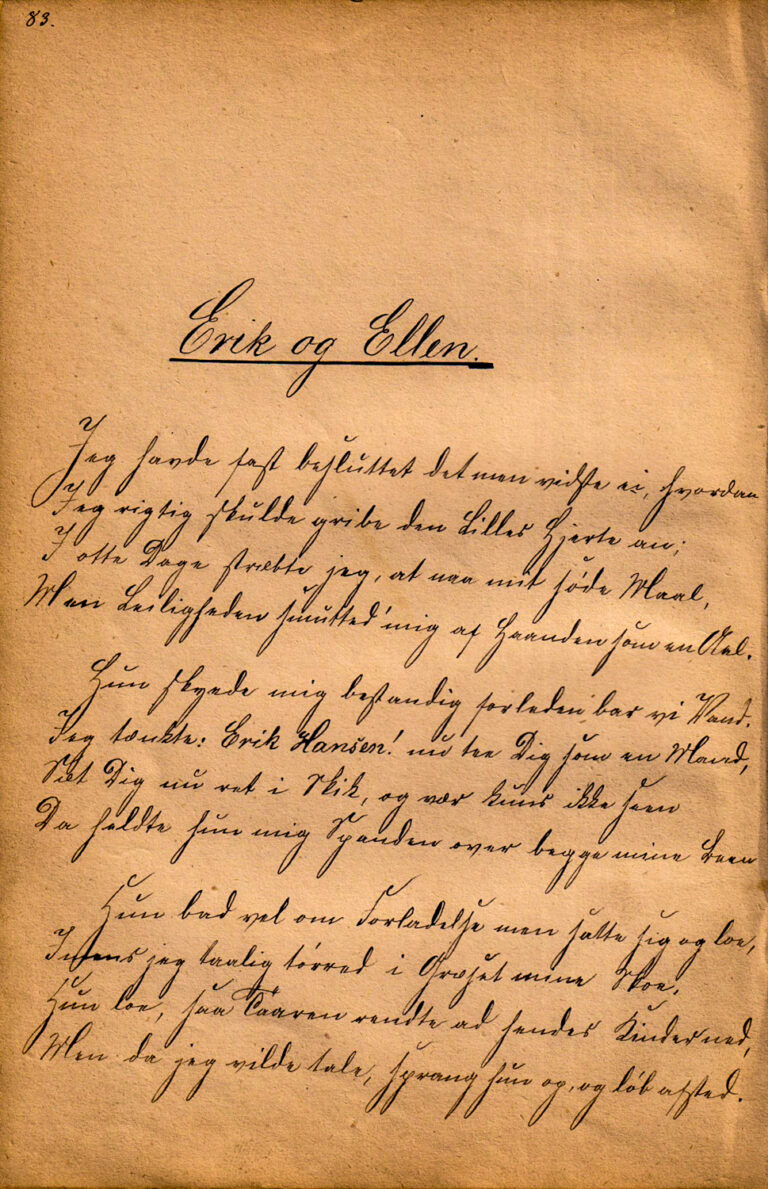 83.
Erik og Ellen.
Jeg havde fast besluttet det men vidste ei, hvordan
Jeg rigtig skulde gribe den Lilles Hjerte an;
I otte Dage stræbte jeg, at naa mit søde Maal,
Men Leiligheden smutted' mig af Haanden som en Aal.
Hun skyede mig bestandig forleden bar vi Vand.
Jeg tænkte: Erik Hansen! nu tee Dig som en Mand,
Sæt Dig nu ret i Skik, og vær kuns ikke seen
Da hældte hun mig Spanden over begge mine Been
Hun bad vel om Forladelse men satte sig og loe,
Imens jeg taalig tørred i Græset mine Skoe.
Hun loe, saa Taaren rendte ad hendes Kinder ned,
Men da jeg vilde tale, sprang hun op, og løb afsted.